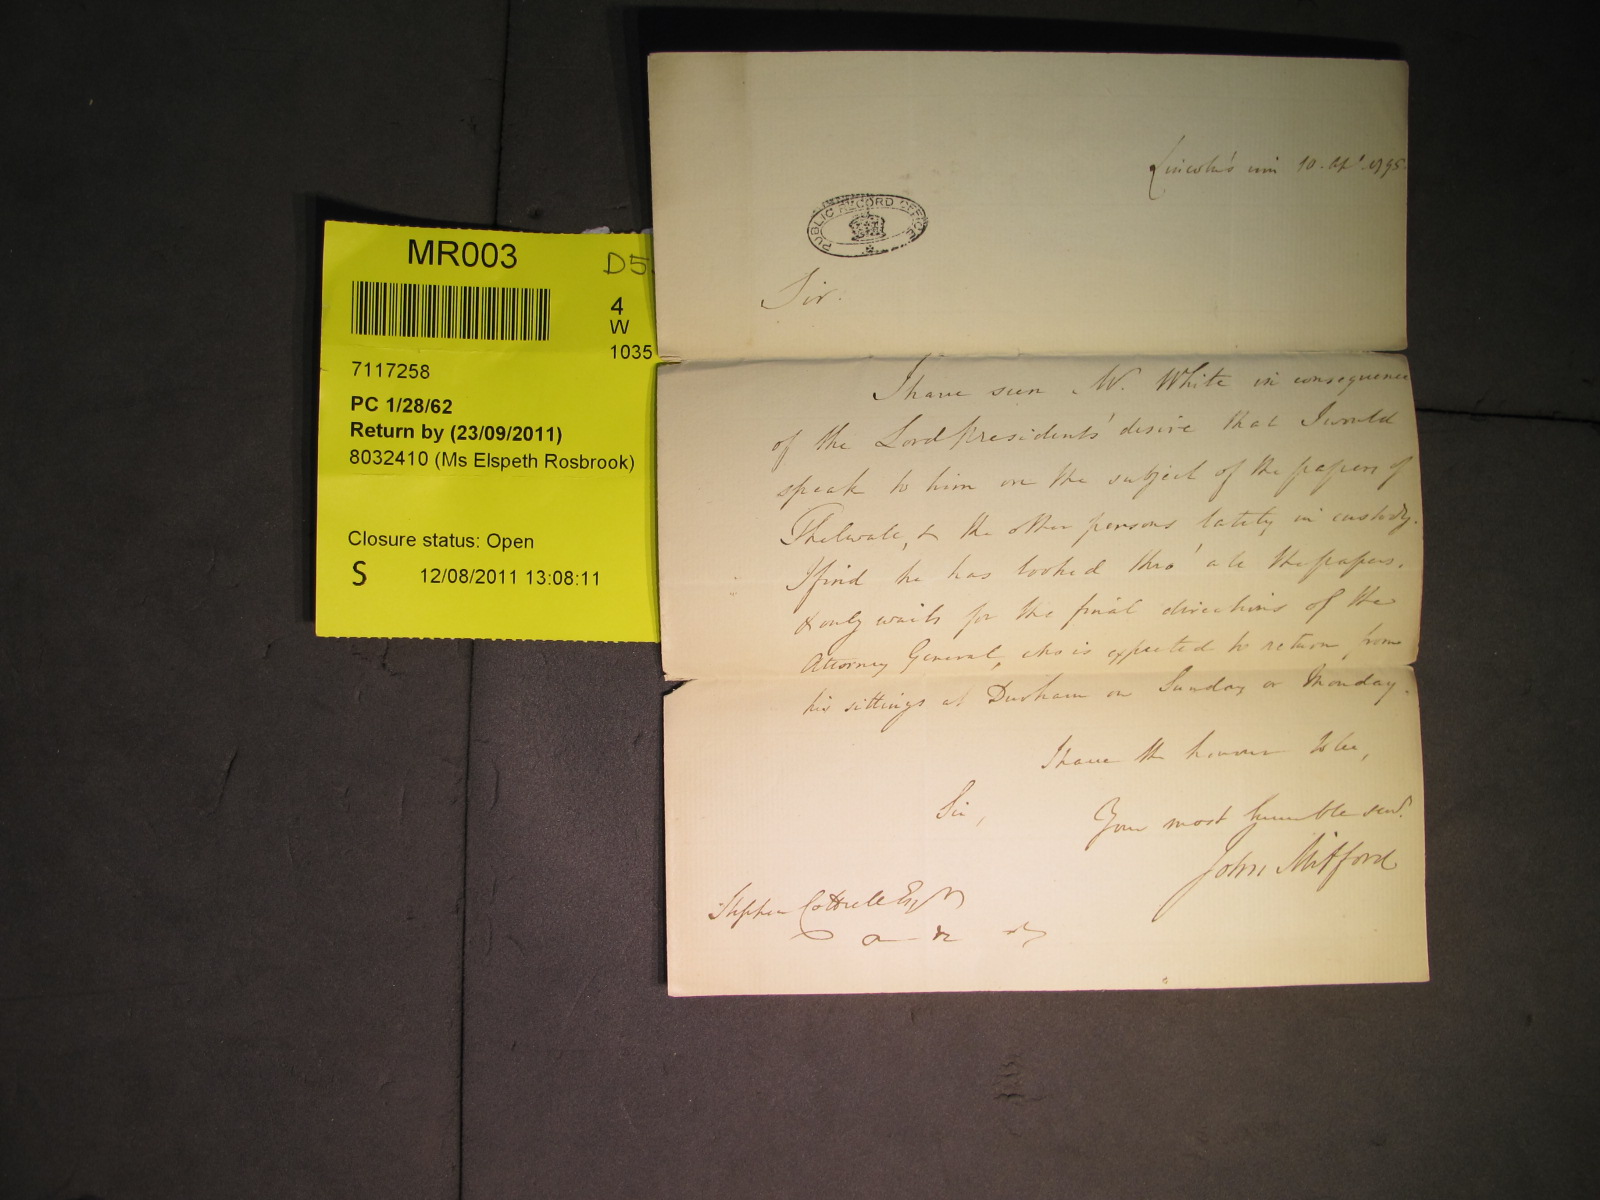 MR003
D5
4
W
1035
7117258
PC 1/28/62
Return by (23/09/2011)
8032410 (Ms Elspeth Rosbrook)
Closure status: Open
S 12/08/2011 13:08:11
Lincoln's inn 10. Apl. 1795.
PUBLIC RECORD OFFICE
Sir.
I have seen Mr. White in consequence
of the Lord Presidents' desire that I would
speak to him on the subject of the papers of
Thelwall, & the other persons lately in custody.
I find he has looked thro' all the papers,
& only waits for the final directions of the
Attorney General, who is expected to return from
his sittings at Durham on Sunday or Monday.
I have the honour to be,
Sir,
Your most humble servt.
John Mitford
Stephen Cottrell Esqr